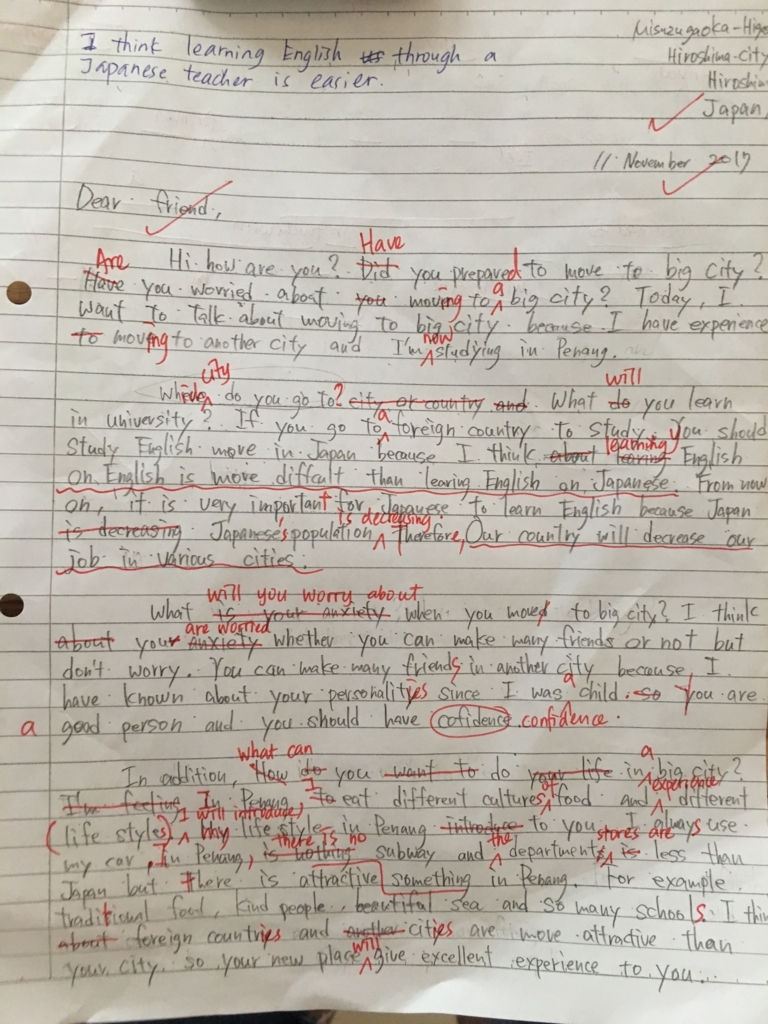 I think learning English through a
Japanese teacher is easier.
Misuzugaoka-Higa
Hiroshima-city
Hiroshim
Japan,
11. November 2017
Dear friend,
Have
Hi. how are you? Did you prepared to move to big city?
Are a
Have you worried about you moving to big city? Today, I
want to talk about moving to big city because I have experience
now
to moving to another city and I'm studying in Penang.
city will
Which do you go to? city or country and. What do you learn
a
in university? If you go to foreign country to study. You should
learning
study English more in Japan because I think about learing English
on English is more diffcult than learing English on Japanese. From now
on, it is very important for Japanese to learn English because Japan
is decreasing.
is decreasing Japanese's population Therefore, Our country will decrease our
job in various cities.
will you worry about
What is your anxiety when you moved to big city? I think
are worried
about your anxiety whether you can make many friends or not but
don't worry. You can make many friends in another city because I
a
have known about your personalityes since I was child. so You are
a good person and you should have cofidence. confidence.
What can a
In addition, How do you want to do your life in big city?
I of experience
I'm feeling In Penang, to eat different cultures food and different
I will introduce,
(life styles) my life style in Penang introduce to you. I always use
there is no the stores are
my car, In Penang, is nothing subway and department is less than
Japan but there is attractive something in Penang. For example
traditional food, kind people, beautiful sea and so many schools. I thin
about foreign countries and another cities are more attractive than
will
your city. so your new place give excellent experience to you...